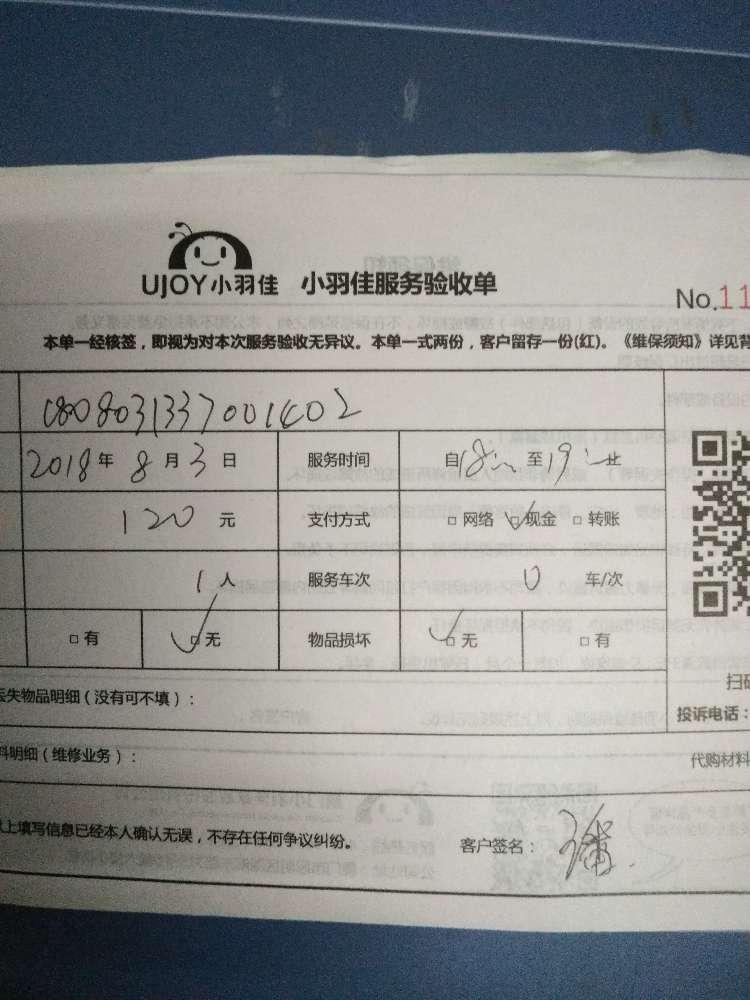 UJOY小羽佳 小羽佳服务验收单
No.11
本单一经核签，即视为对本次服务验收无异议。本单一式两份，客户留存一份(红)。《维保须知》详见背
1808031337001402
2018年8月3日 服务时间 自18:00至19:00止
120元 支付方式 □网络 □现金 □转账
1人 服务车次 0 车/次
□有 □无 物品损坏 □无 □有
丢失物品明细（没有可不填）：
扫码
投诉电话：
料明细（维修业务）：
代购材料
以上填写信息已经本人确认无误，不存在任何争议纠纷。
客户签名：